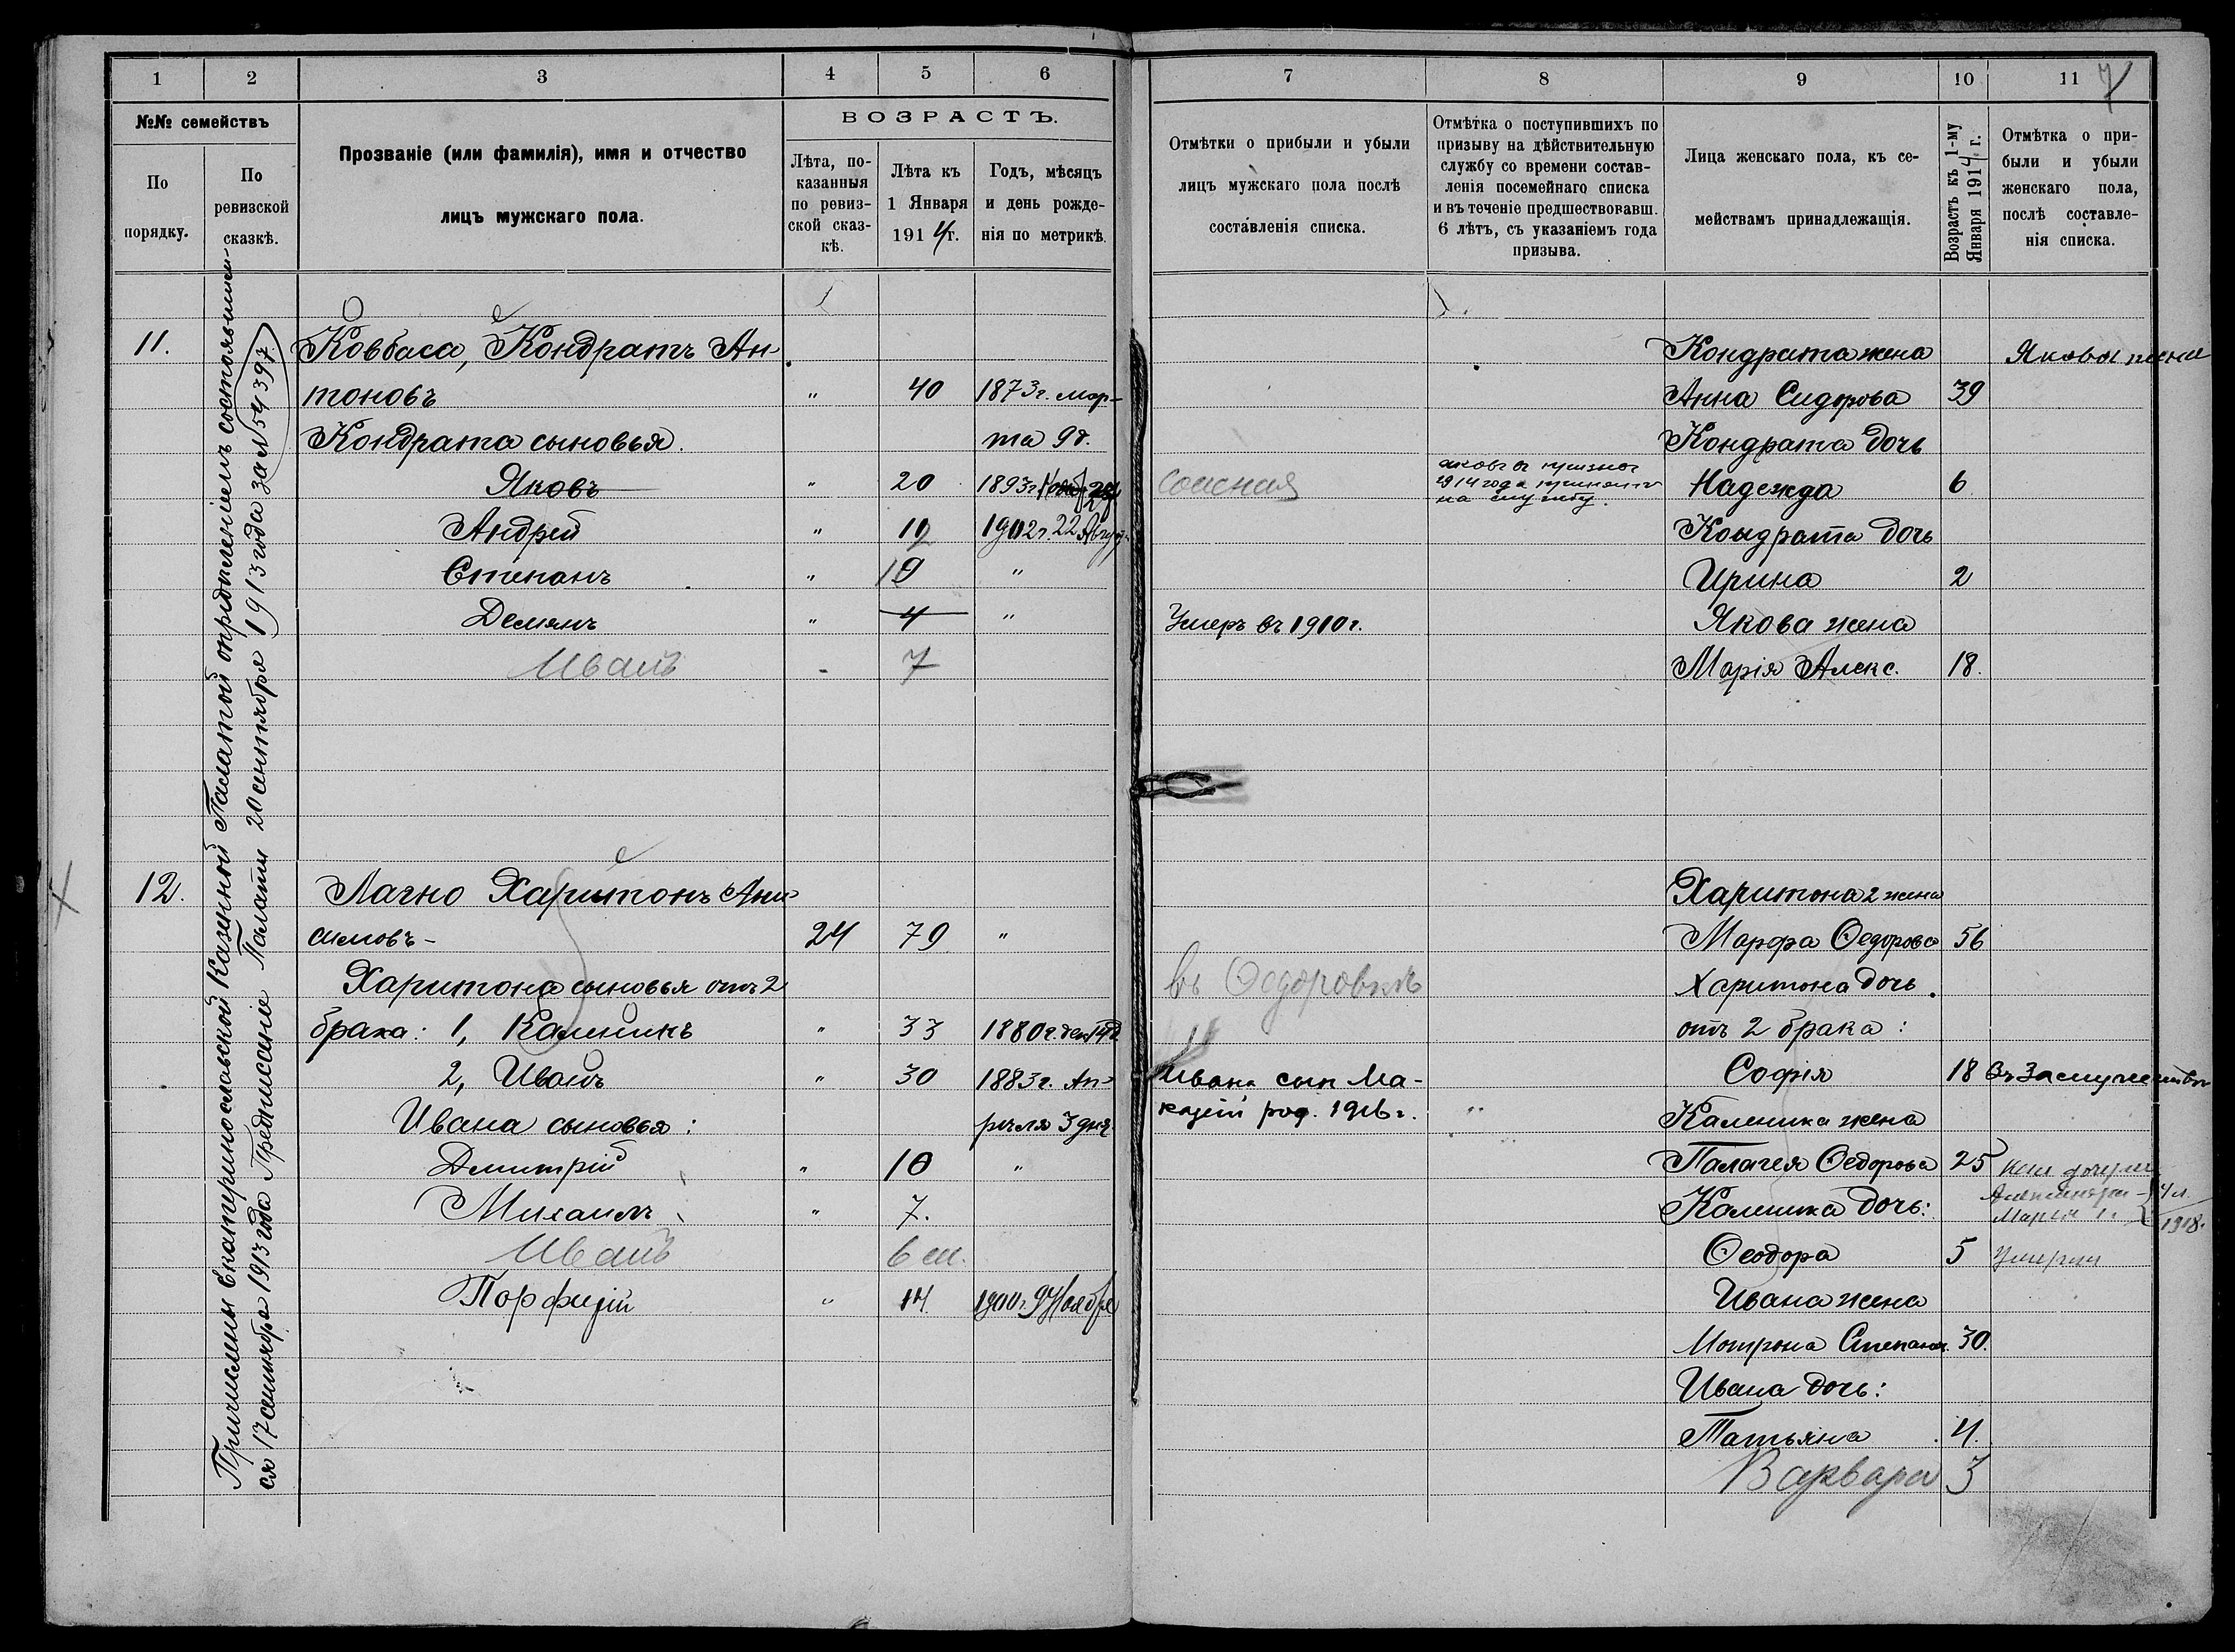 1 2 3 4 5 6
№№ семействъ
По порядку.
По ревизской сказкѣ.
Прозваніе (или фамилія), имя и отчество
лицъ мужскаго пола.
ВОЗРАСТЪ.
Лѣта, по-
казанныя
по ревиз-
ской сказ-
кѣ.
Лѣта къ
1 Января
1914 г.
Годъ, мѣсяцъ
и день рожде-
нія по метрикѣ.
Причислены Екатеринославской Казенной Палатой опредѣленіемъ состоявшим-
ся 17 сентября 1913 года Предписаніе Палаты 20 сентября 1913 года за № 54397
11. Ковбаса, Кондратъ Ан-
тоновъ " 40 1873 г. мар-
Кондрата сыновья. та 9 д.
Яковъ " 20 1893 г.
Андрей " 12 1902 г. 22
Степанъ " 10 "
Демянъ " 4 "
Иванъ - 7
12. Лагно Харитонъ Ани-
симовъ - 24 79 "
Харитона сыновья отъ 2
брака: 1, Каленикъ " 33 1880 г. дек 14 д
2, Иванъ " 30 1883 г. Ап-
Ивана сыновья: рѣля 3 дня
Дмитрій " 10 "
Михаилъ " 7.
Иванъ 6 м.
Порфирій " 14 1900 г. 9 Ноября
7 8 9 10 11
7
Отмѣтки о прибыли и убыли
лицъ мужскаго пола послѣ
составленія списка.
Отмѣтка о поступившихъ по
призыву на дѣйствительную
службу со времени состав-
ленія посемейнаго списка
и въ теченіе предшествовавш.
6 лѣтъ, съ указаніемъ года
призыва.
Лица женскаго пола, къ се-
мействамъ принадлежащія.
Возрастъ къ 1-му
Января 1914 г.
Отмѣтка о при-
были и убыли
женскаго пола,
послѣ составле-
нія списка.
Кондрата жена Якова жена
Анна Сидорова 39
Кондрата дочь
1914 года
на службу.
Надежда 6
Кондрата дочь
Ирина 2
Умеръ въ 1910 г. Якова жена
Марія Алекс. 18.
Харитона 2 жена
Марфа Ѳедорова 56
въ Ѳедоровкѣ Харитона дочь
отъ 2 брака:
Ивана сын Ма- Софія 18 Въ замужествѣ
род. 1916 г. " Каленика жена
Палагея Ѳедорова 25
Каленика дочь: 4 л.
1918.
Ѳеодора 5 Умерли
Ивана жена
Мотрона Степанов. 30.
Ивана дочь:
Татьяна 4.
Варвара 3